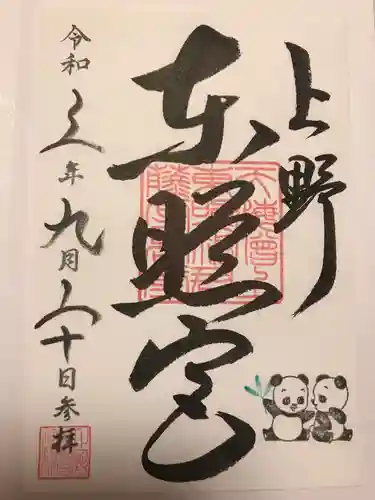 上野
東照宮
令和年九月十日参拝